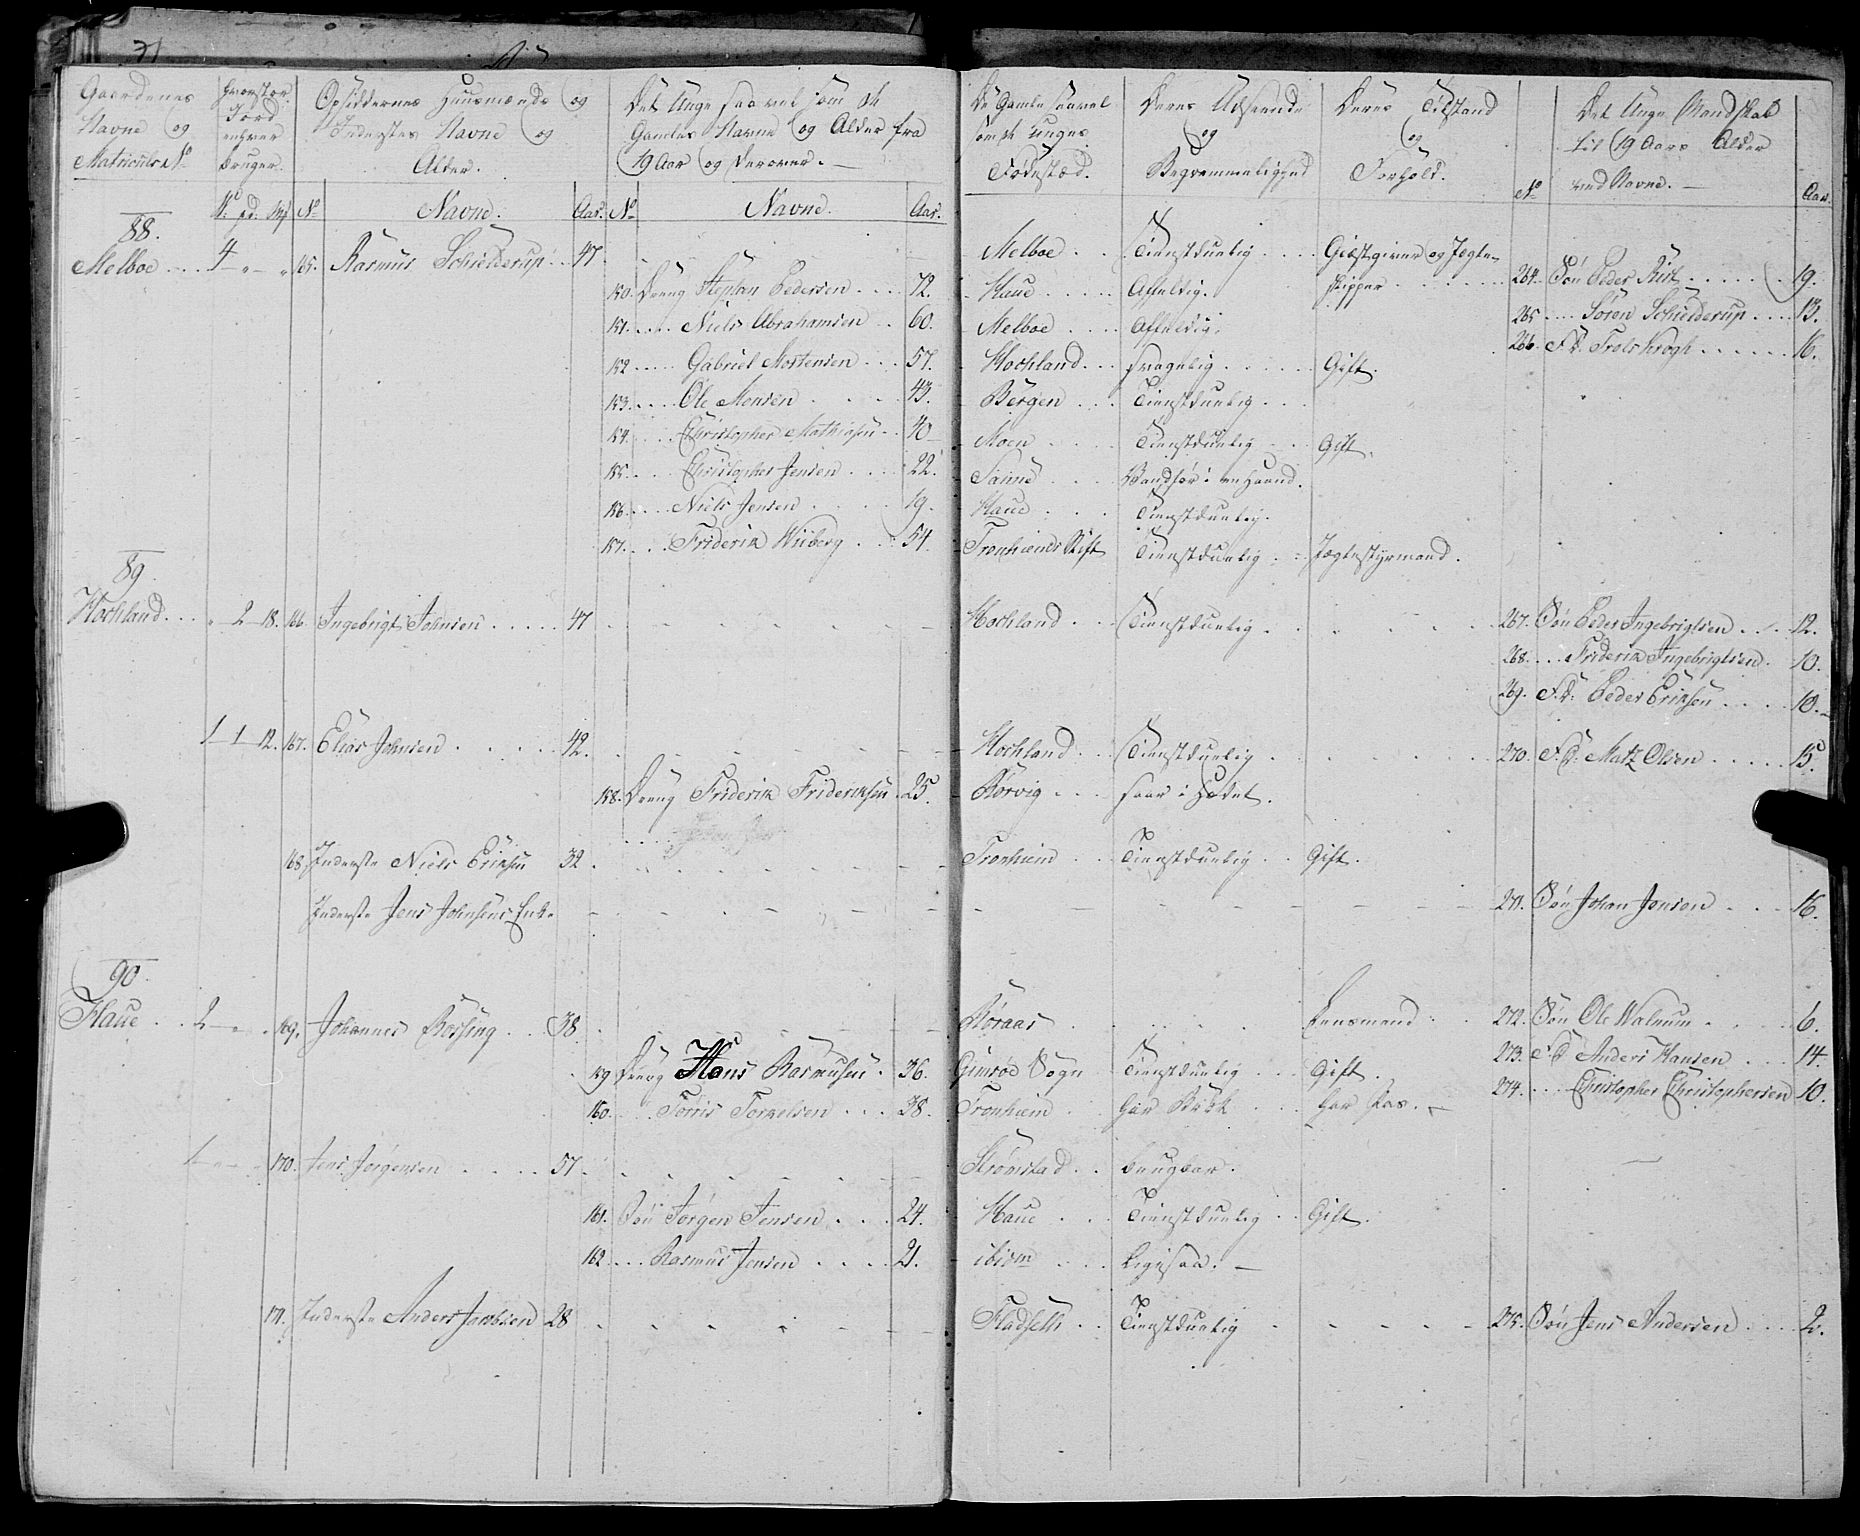 Gaardenes Navne og Matriculs No
Hvorstor Jord enhver bruger.
Opsiddernes Huusmænds og Inderstes Navne og Alder.
Det Unge saavel som de Gamles Navne og Alder fra 19 Aar og derover. —
De Gamle saavel som de unges Fødested.
Deres Udseende og Begvemmelighed
Deres Tilstand og Forhold.
Det Unge Mandskab til 19 Aars Alder ved Navne. —
V: pd: Mk No Navne. Aar. No Navne. Aar. No Aar.
88.
Melboe 4 " " 165. Rasmus Schielderup 47 Melboe Tienstduelig Giæstgiver og Jægte-
150. Dreng Stephan Pedersen 72. Haue Afældig. skipper 264. Søn Peder Rist 19.
151. Niels Abrahamsen 60. Melboe Afældig. 265 Søren Schielderup 13.
152 Gabriel Mortensen 57. Hochland svagelig Gift. 266. F.S: Trols Krogh 16.
153. Ole Monsen 43. Bergen Tienstduelig
154. Christopher Mathiasen 40 Moen Tienstduelig Gift.
155. Christopher Jensen 22. Sanne Vandfør i en Haand.
156. Niels Jensen 19. Haue Tienstduelig.
157. Friderik Wiiberg 54. Tronhiems Stift Tienstduelig Jægtestyrmand.
89.
Hochland " 2 18. 166. Ingebrigt Johnsen 47 Hochland Tienstduelig 267. Søn Peder Ingebrigtsen 12.
268. Friderik Ingebrigtsen 10.
269. F.S: Peder Eriksen 10.
1 1 12. 167. Elias Johnsen 42. Hochland Tienstduelig 270. F.S: Matz Olsen 15.
158. Dreng Friderik Frideriksen 25. Rørvig saar i Hodet.
168. Inderste Niels Eriksen 32 Tronhiem Tienstduelig Gift.
Inderste Jens Johnsens Enke 271. Søn Johan Jensen 16.
90.
Haue 2 " " 169. Johannes Rossing 38. Røraas Lensmand 272. Søn Ole Walnum 6.
159 Dreng Hans Rasmusen 36. Gimsøe Sogn Tienstduelig Gift. 273. F.S Anders Hansen 14.
160. Torris Torkelsen 38. Tronhiem har Brok har Pas. — 274. Christopher Christophersen 10.
1 " " 170. Jens Jørgensen 57. Strømstad brugbar.
161. Søn Jørgen Jensen 24. Haue Tienstduelig Gift.
162 Rasmus Jensen 21. ibidm ligesaa. —
171. Inderste Anders Jacobsen 28 Fladseth Tienstduelig 275. Søn Jens Andersen 2.